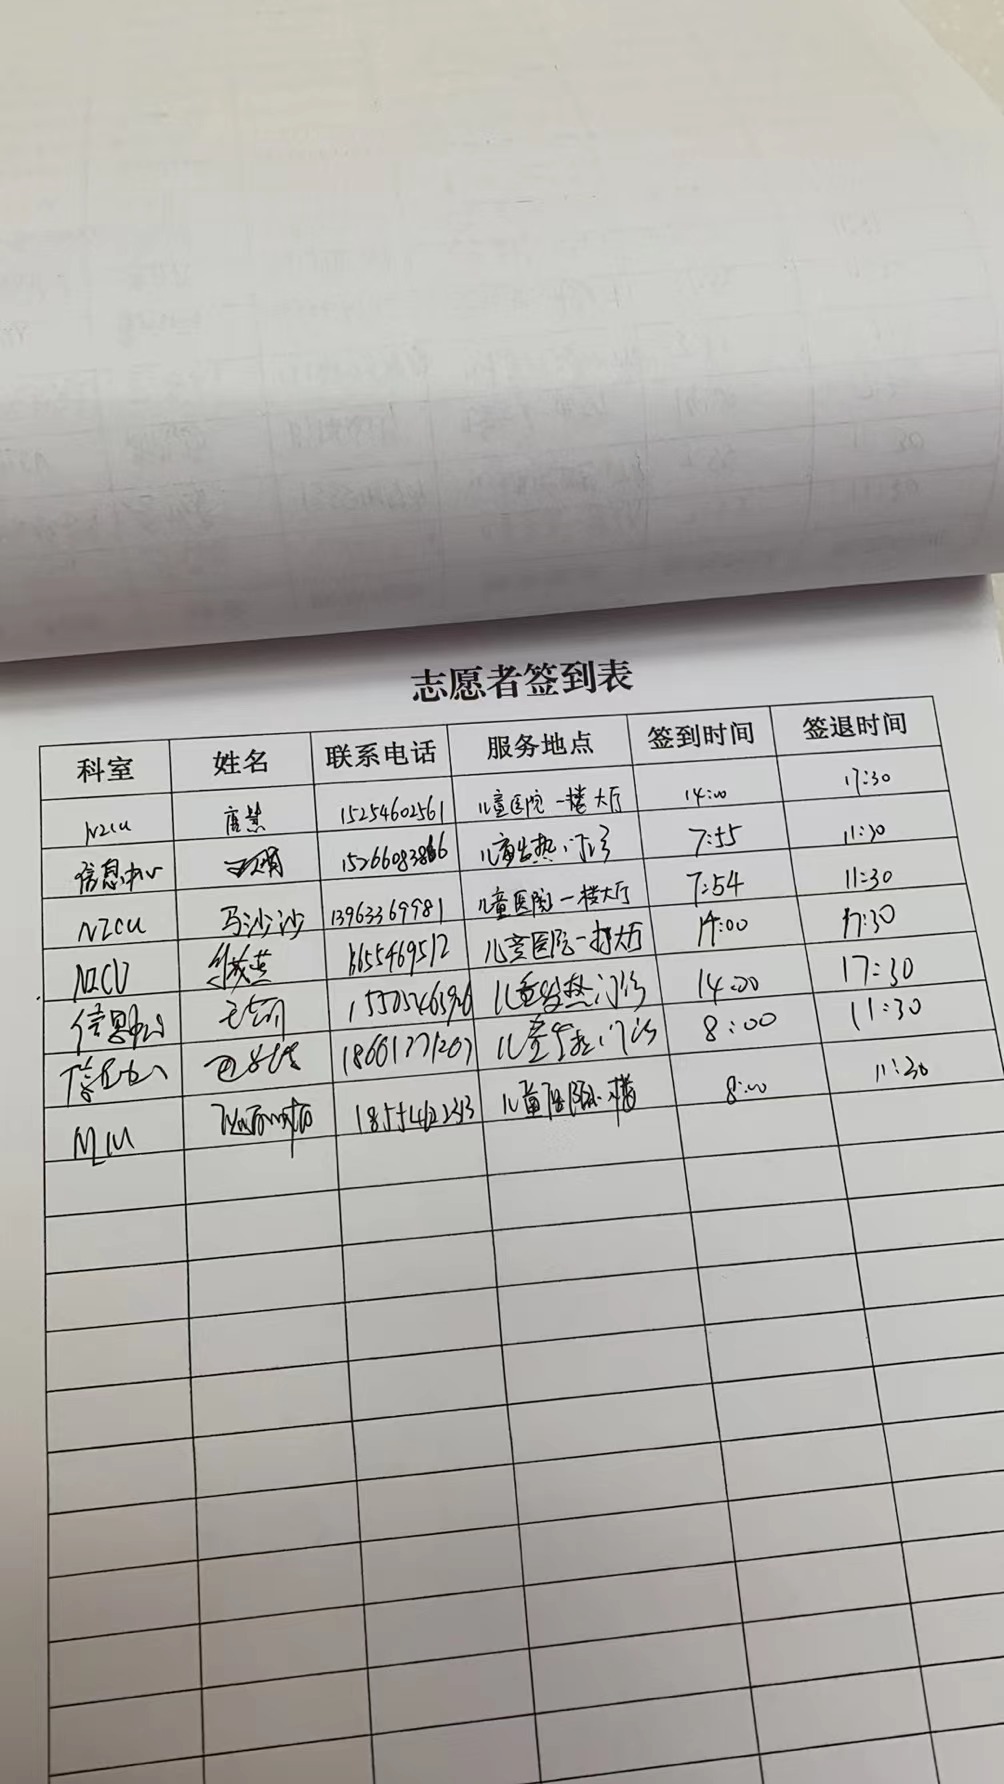 志愿者签到表
科室 姓名 联系电话 服务地点 签到时间 签退时间
NICU 唐慧 15254602561 儿童医院一楼大厅 14:00 17:30
信息中心 15266083866 儿童发热门诊 7:55 11:30
NICU 马沙沙 13963369981 儿童医院一楼大厅 7:54 11:30
NICU 儿童医院一楼大厅 14:00 17:30
信息中心 儿童发热门诊 14:00 17:30
信息中心 18661771207 儿童发热门诊 8:00 11:30
NICU 儿童医院一楼 8:00 11:30